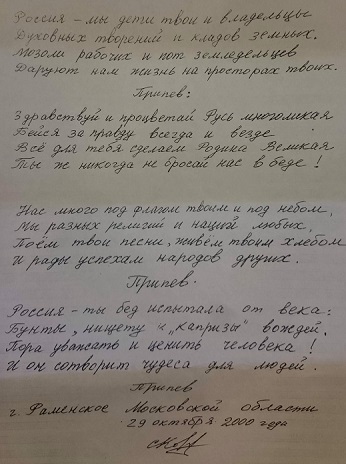 Россия - мы дети твои и владельцы
Духовных творений и кладов земных.
Мозоли рабочих и пот земледельцев
Даруют нам жизнь на просторах твоих.
Припев:
Здравствуй и процветай Русь многоликая
Бейся за правду всегда и везде
Всё для тебя сделаем Родина Великая
Ты ж никогда не бросай нас в беде!
Нас много под флагом твоим и под небом,
Мы разных религий и наций любых,
Поём твои песни, живём твоим хлебом
И рады успехам народов других.
Припев.
Россия - ты бед испытала от века:
Бунты, нищету и "капризы" вождей.
Пора уважать и ценить человека!
И он сотворит чудеса для людей.
Припев
г. Раменское Московской области
29 октября 2000 года